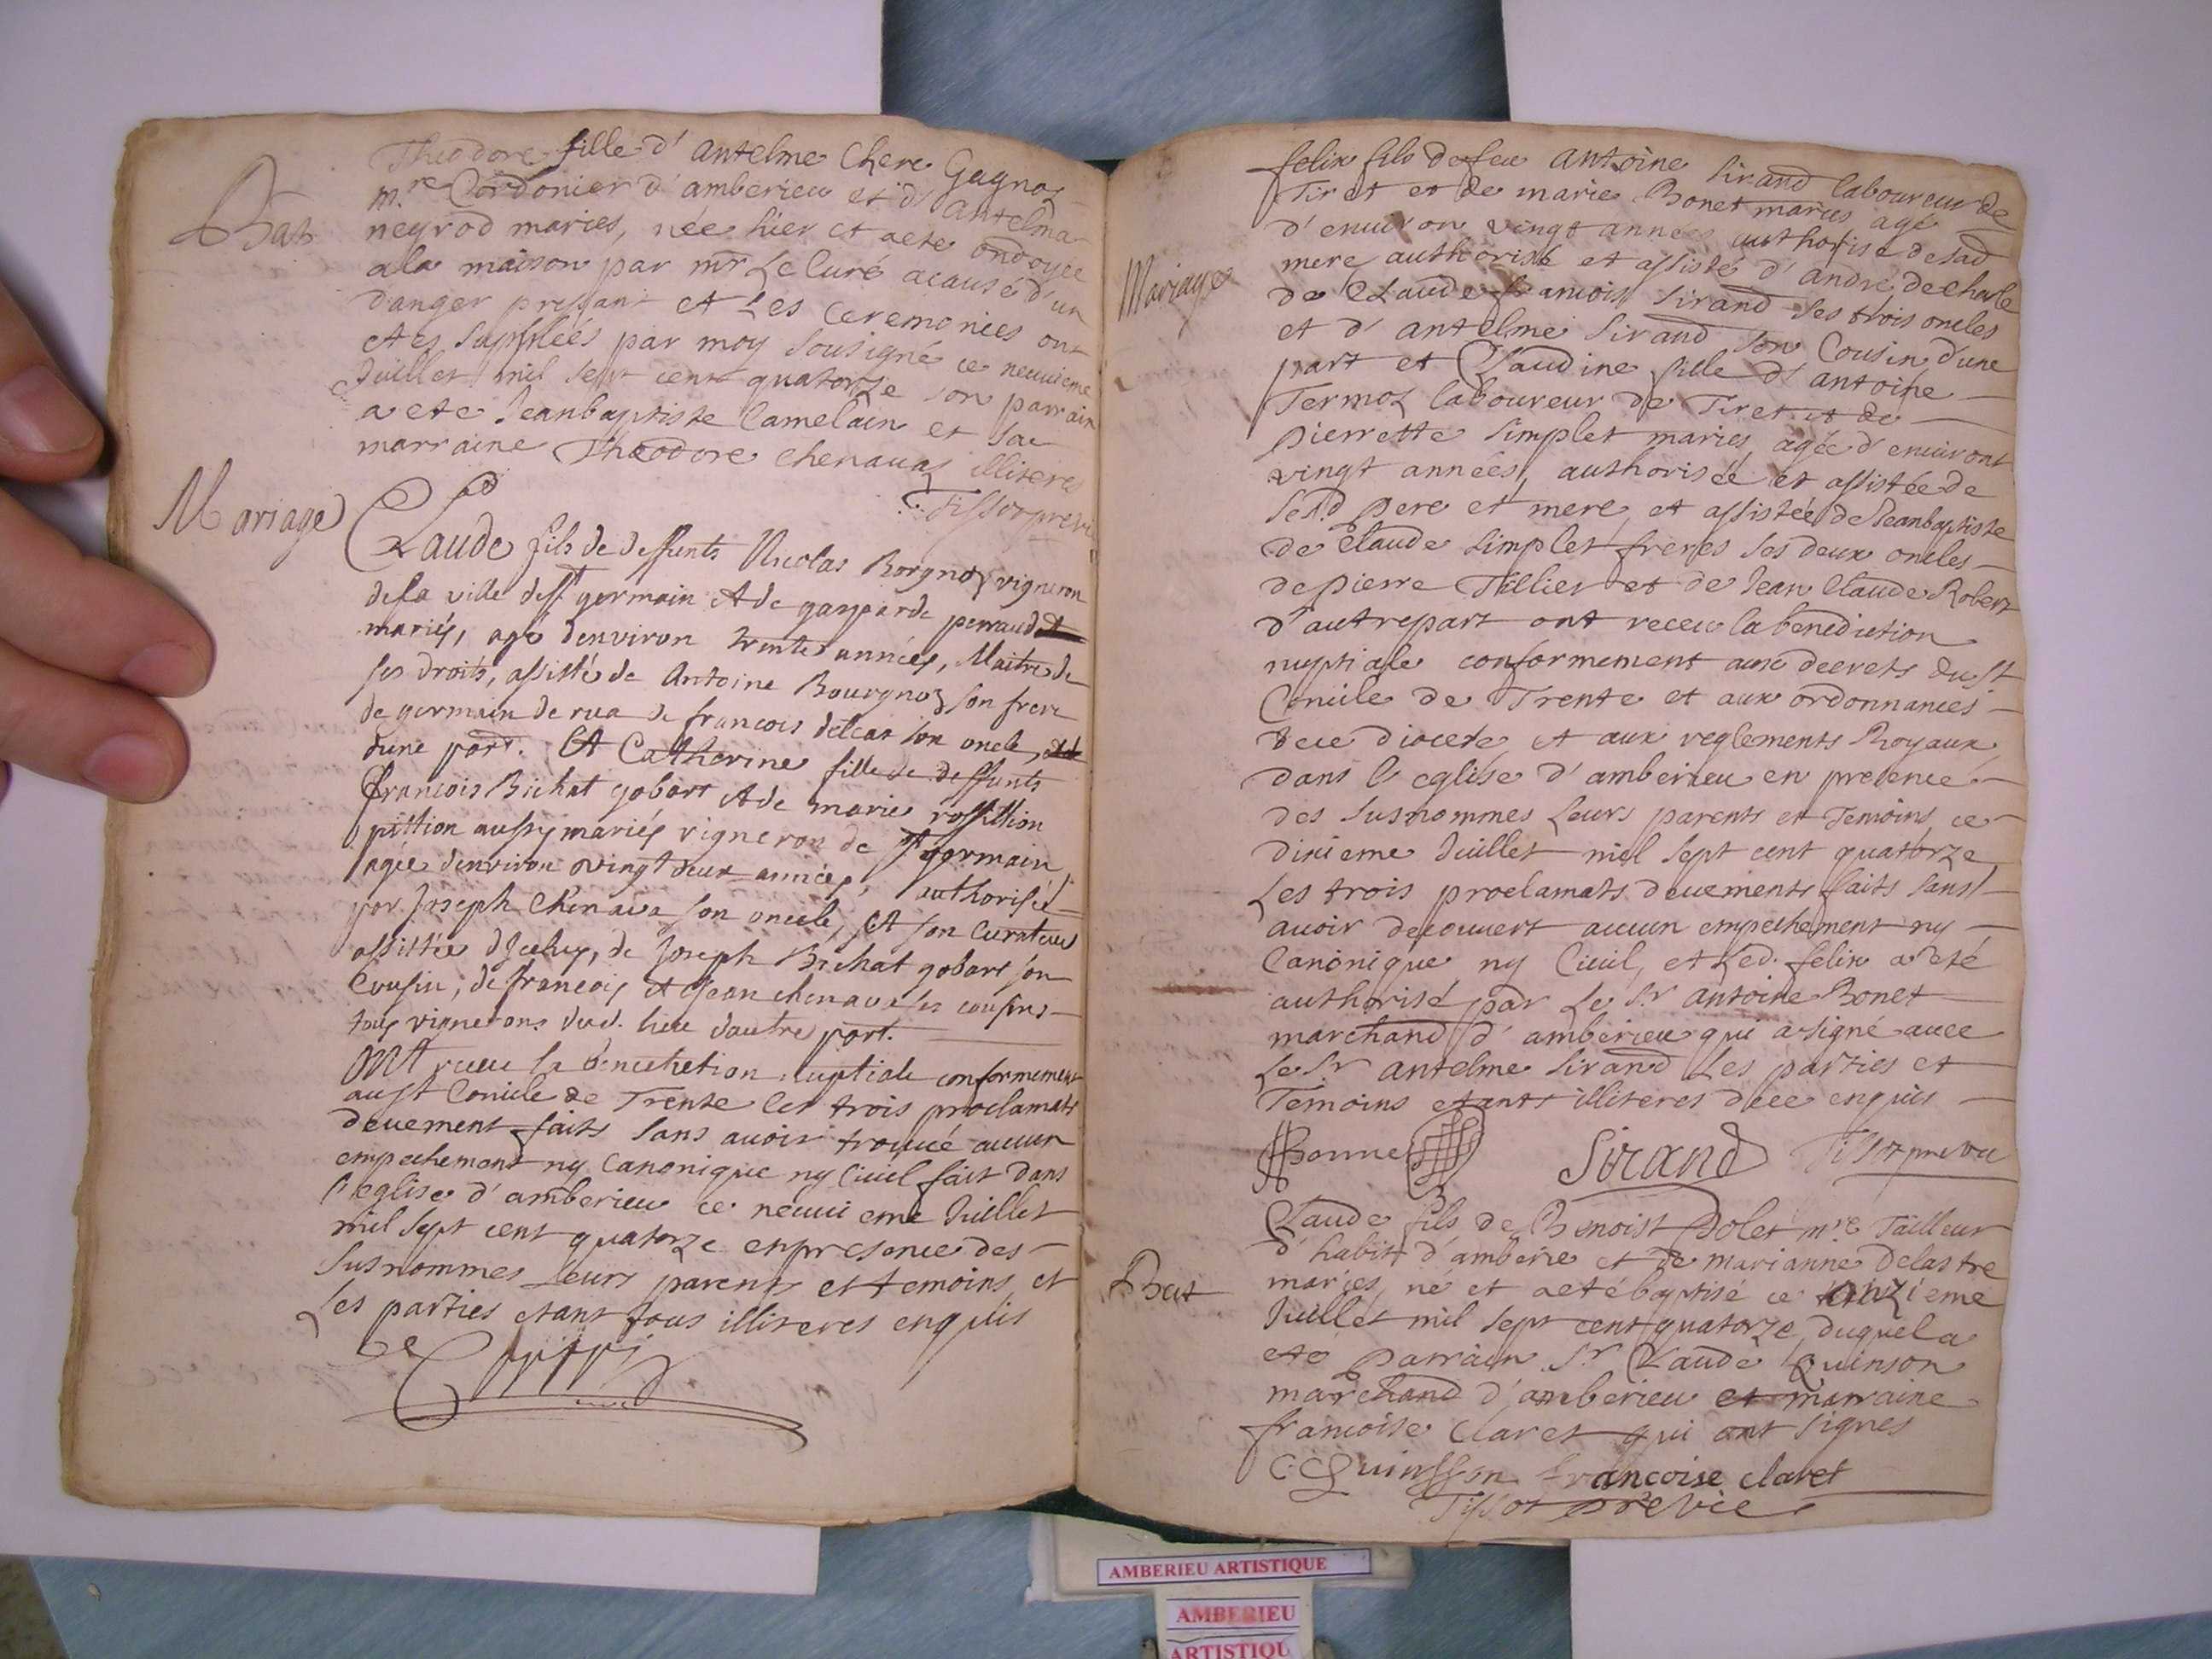 Bat
Theodore fille d' antelme Chere Gagnoz
m.re Cordonier d' amberieu et d' antelma
negrod maries, née hier et aete ondoyée
ala maison par mr Le Curé acause d'un
danger pressant et Les Ceremonies ont
etes Supplées par moy Sousigné ce neuvieme
Juillet mil sept cent quatorze son parrain
a ete Jeanbaptiste Camelain et Sa
marraine Theodore chenavaz illiteres
Tissot previc
Mariage
Claude fils de deffunts Nicolas Borgnoz vigneron
dela ville de St germain et de gasparde perraud
mariés, agé denviron trente années, Maitre de
ses droits, assisté de Antoine Bourgnoz son frere
de germain de rua de francois delcar son oncle,
dune part. Et Catherine fille de deffunts
francois Bichat gobart et de marie rossittion
pittion aussy mariés vigneron de St germain
agée denviron vingt deux années, authorisée
par Joseph Chenava son oncle, et son Curateur
assistée dIceluy, de Joseph Bichat gobart son
Cousin, de francois et Jean chenava ses cousins
tous vignerons dud. lieu dautre part.
Ont receu la benediction nuptiale conformement
aust Concile de Trente les trois proclamats
deuement faits Sans avoir trouvé aucun
empechement ny Canonique ny Civil fait dans
l'eglise d' amberieu ce neuvi eme Juillet
mil sept cent quatorze en presence des
Susnommes Leurs parents et temoins et
Les parties etant tous illiteres enquis
Mariage
felix fils de feu antoine Sirand laboureur de
Tiret et de marie Bonet maries agé
d' environ vingt années authorisé de Sad
mere authorisé et assisté d' andré de charle
de Claude francois Sirand Ses trois oncles
et d' antelme Sirand Son Cousin d'une
part et Claudine fille d' antoine
Termoz laboureur de Tiret et de
pierrette Simplet maries agée d' environt
vingt années, authorisée et assistée de
Sesd. pere et mere, et assistée de Jeanbaptiste
de Claude Simplet freres Ses deux oncles
de pierre Tillier et de Jean Claude Robert
d'autrepart ont receu la benediction
nuptiale conformement aux decrets du St
Concile de Trente et aux ordonnances
de ce diocese et aux reglements Royaux
dans l' eglise d' amberieu en presence
des Susnommes Leurs parents et Temoins ce
dixieme Juillet mil sept cent quatorze
Les trois proclamats deuements faits Sans
avoir decouvert aucun empechement ny
Canonique ny Civil, et Led. felix a eté
authorisé par Le S.r antoine Bonet
marchand d' amberieu qui a signé avec
Le S.r antelme Sirand Les parties et
Temoins etants illiteres de ce enquis
Bonnet Sirand Tissot previc
Bat
Claude fils de Benoist Dolet m.re Tailleur
d' habit d' amberie et de marianne Delastre
maries, né et aeté baptisé ce onzieme
Juillet mil sept cent quatorze, duquel a
eté parrain S.r Claude Quinson
marchand d' amberieu et marraine
francoise Claret qui ont Signes
C: Quinsson francoise claret
Tissot previc
AMBERIEU ARTISTIQUE
AMBERIEU
ARTISTIQU